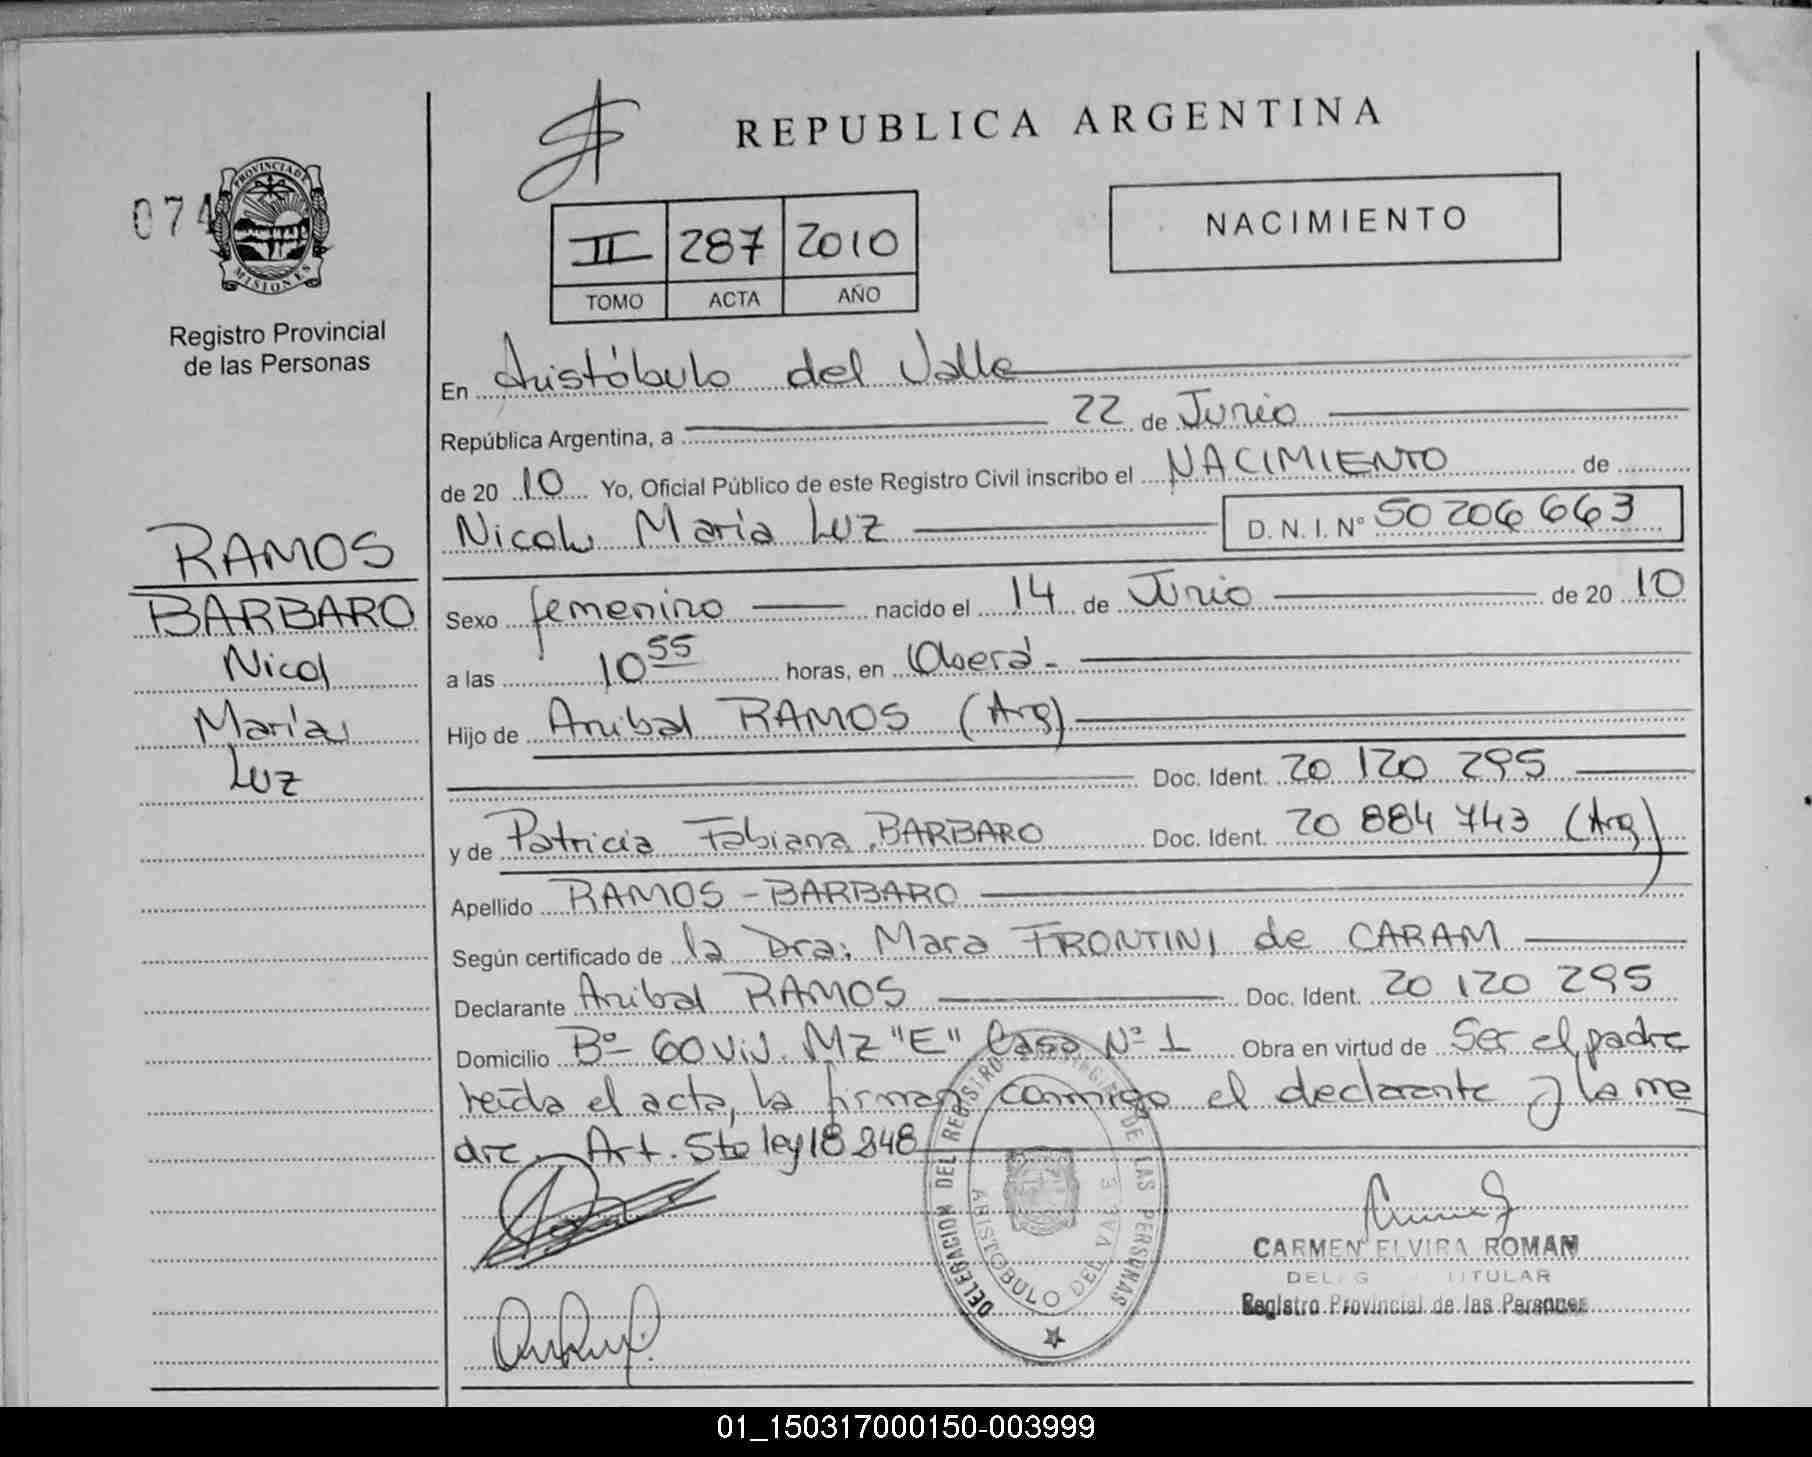 REPUBLICA ARGENTINA
074
PROVINCIA DE
MISIONES
Registro Provincial
de las Personas
II 287 2010
TOMO ACTA AÑO
NACIMIENTO
En Aristóbulo del Valle
República Argentina, a 22 de Junio
de 20 10 Yo, Oficial Público de este Registro Civil inscribo el NACIMIENTO de
Nicol María Luz D. N. I. N° 50 206 663
RAMOS
BARBARO
Nicol
María
Luz
Sexo femenino nacido el 14 de Junio de 20 10
a las 10 55 horas, en Oberá.-
Hijo de Anibal RAMOS (Arg)
Doc. Ident. 20 120 295
y de Patricia Fabiana BARBARO Doc. Ident. 20 884 743 (Arg)
Apellido RAMOS - BARBARO
Según certificado de la Dra: Mara FRONTINI de CARAM
Declarante Anibal RAMOS Doc. Ident. 20 120 295
Domicilio Bº 60 Viv. Mz "E" Casa Nº 1 Obra en virtud de Ser el padre
leída el acta, la firman conmigo el declarante y la ma
dre. Art. 5to ley 18 248
DELEGACION DEL REGISTRO DE LAS PERSONAS
ARISTOBULO DEL VALLE
CARMEN ELVIRA ROMAN
TITULAR
Registro Provincial de las Personas
01_150317000150-003999